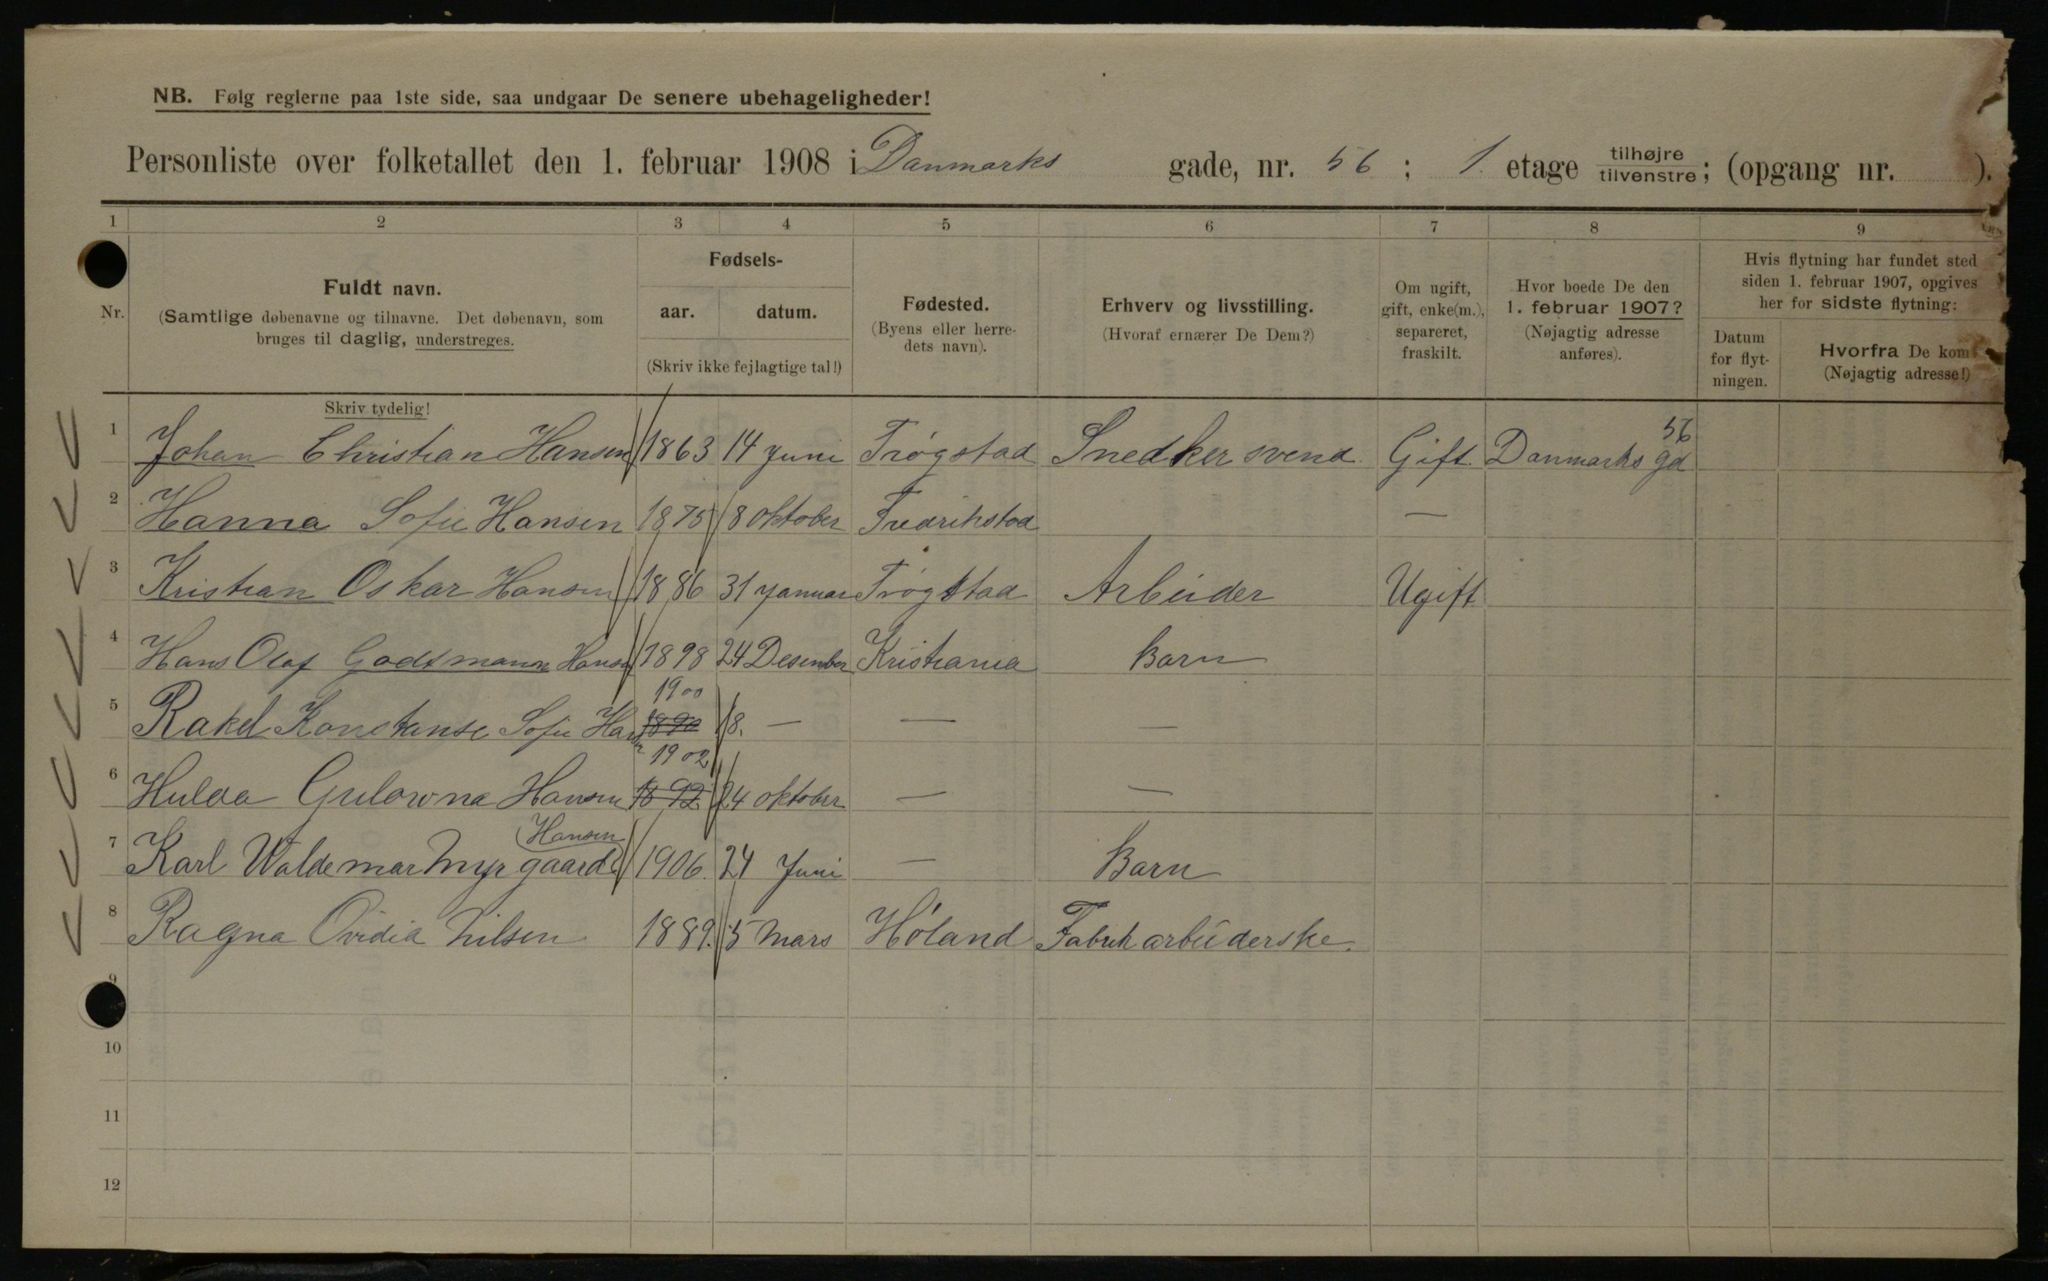 NB. Følg reglerne paa 1ste side, saa undgaar De senere ubehageligheder!
Personliste over folketallet den 1. februar 1908 i Danmarks gade, nr. 56 ; 1. etage tilhøjre tilvenstre; (opgang nr. ).
1 2 3 4 5 6 7 8 9
Nr.
Fuldt navn.
(Samtlige døbenavne og tilnavne. Det døbenavn, som
bruges til daglig, understreges.
Skriv tydelig!
Fødsels-
aar. datum.
(Skriv ikke fejlagtige tal!)
Fødested.
(Byens eller herre-
dets navn).
Erhverv og livsstilling.
(Hvoraf ernærer De Dem?)
Om ugift,
gift, enke(m.),
separeret,
fraskilt.
Hvor boede De den
1. februar 1907?
(Nøjagtig adresse
anføres).
Hvis flytning har fundet sted
siden 1. februar 1907, opgives
her for sidste flytning:
Datum
for flyt-
ningen.
Hvorfra De kom
(Nøjagtig adresse!)
1 Johan Christian Hansen 1863 14 Juni Trøgstad Snedker svend Gift Danmarks gd 56
2 Hanna Sofie Hansen 1875 18 Oktober Fredrikstad —
3 Kristian Oskar Hansen 1886 31 Januar Trøgstad Arbeider Ugift
4 Hans Olaf Godtmann Hansen 1898 24 Desember Kristiania Barn
1900
5 Rakel Konstanse Sofie Hansen 1890 18. — — —
1902
6 Hulda Hansen 1892 24 oktober — —
Hansen
7 Karl Waldemar Myrgaard 1906. 24 Juni — Barn
8 Ragna Ovidia Nilsen 1889. 5 Mars Høland Fabrikarbeiderske.
9
10
11
12